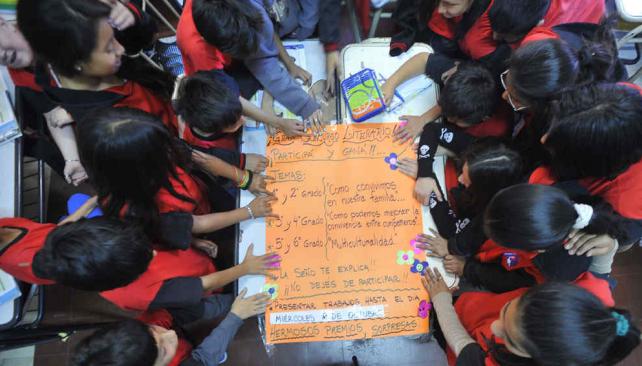 LITERARIO
PARTICIPÁ Y GANÁ!!...
TEMAS:
Y 2° GRADO "COMO CONVIVIMOS
EN NUESTRA FAMILIA..."
3° Y 4° GRADO "COMO PODEMOS MEJORAR LA
CONVIVENCIA ENTRE COMPAÑEROS"
5° Y 6° GRADO "MULTICULTURALIDAD"
LA SEÑO TE EXPLICA!!
¡¡NO DEJES DE PARTICIPAR!!
PRESENTAR TRABAJOS HASTA EL DÍA
MIÉRCOLES DE OCTUBRE
HERMOSOS PREMIOS, SORPRESAS